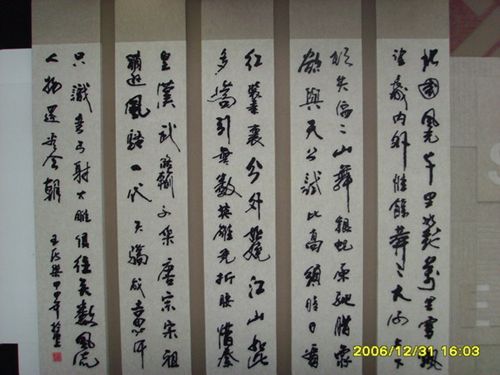 北國風光千里冰封萬里雪飄
望長城内外惟餘莽々大河上下
頓失滔々山舞銀蛇原馳蜡象
欲與天公試比高須晴日看
紅裝素裹分外妖嬈江山如此
多嬌引無數英雄競折腰惜秦
皇漢武略輸文采唐宗宋祖
稍遜風騷一代天驕成吉思汗
只識彎弓射大雕俱往矣數風流
人物還看今朝
2006/12/31 16:03